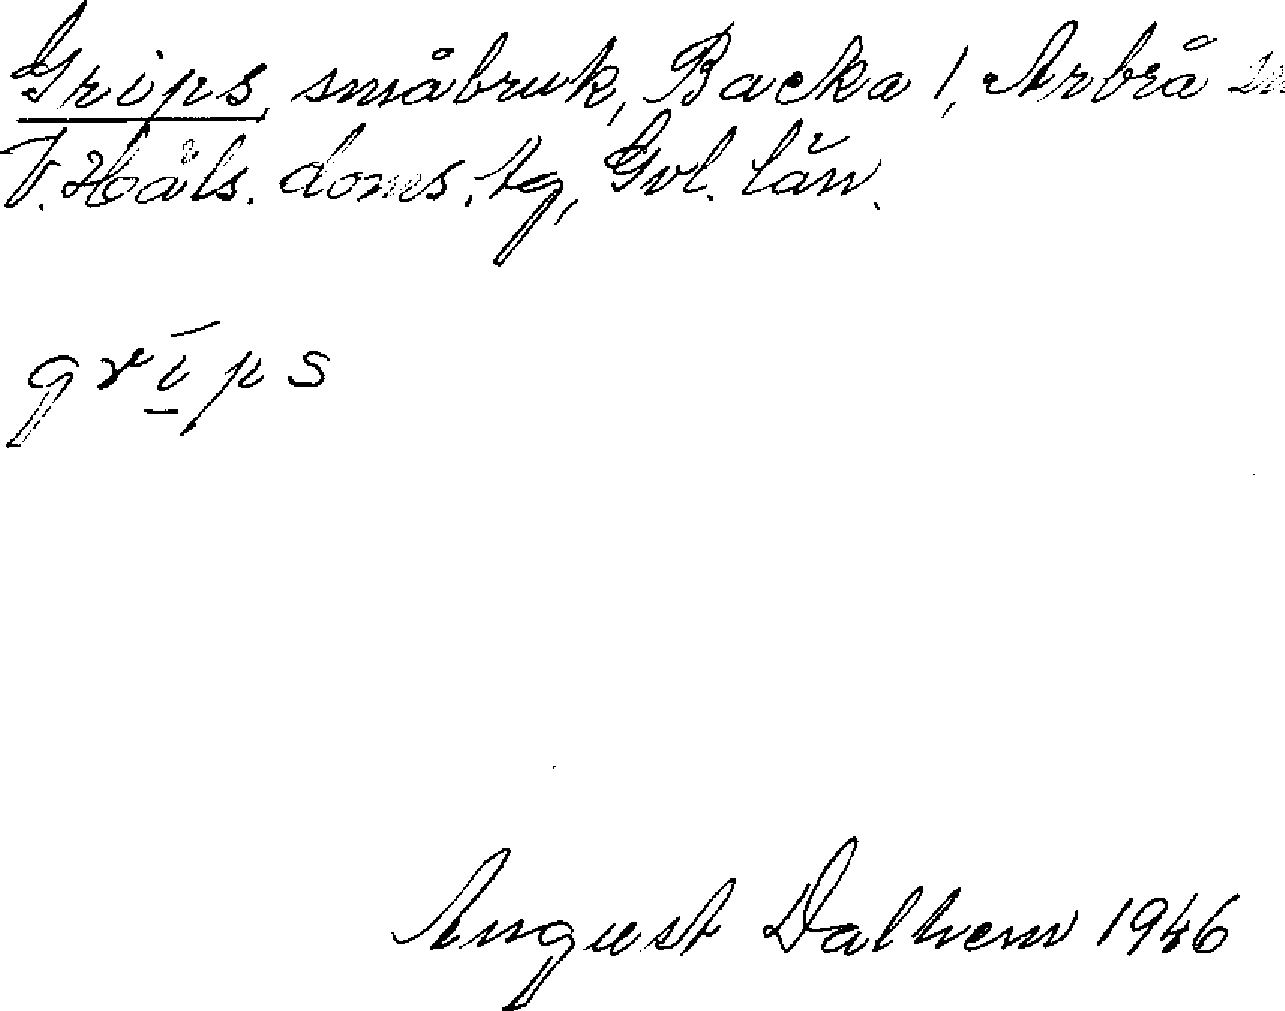 Grips, småbruk, Backa 1, Arbrå sn
V. Häls. doms. tg, Gvl. län.
grīp̱s
August Dalhem 1946